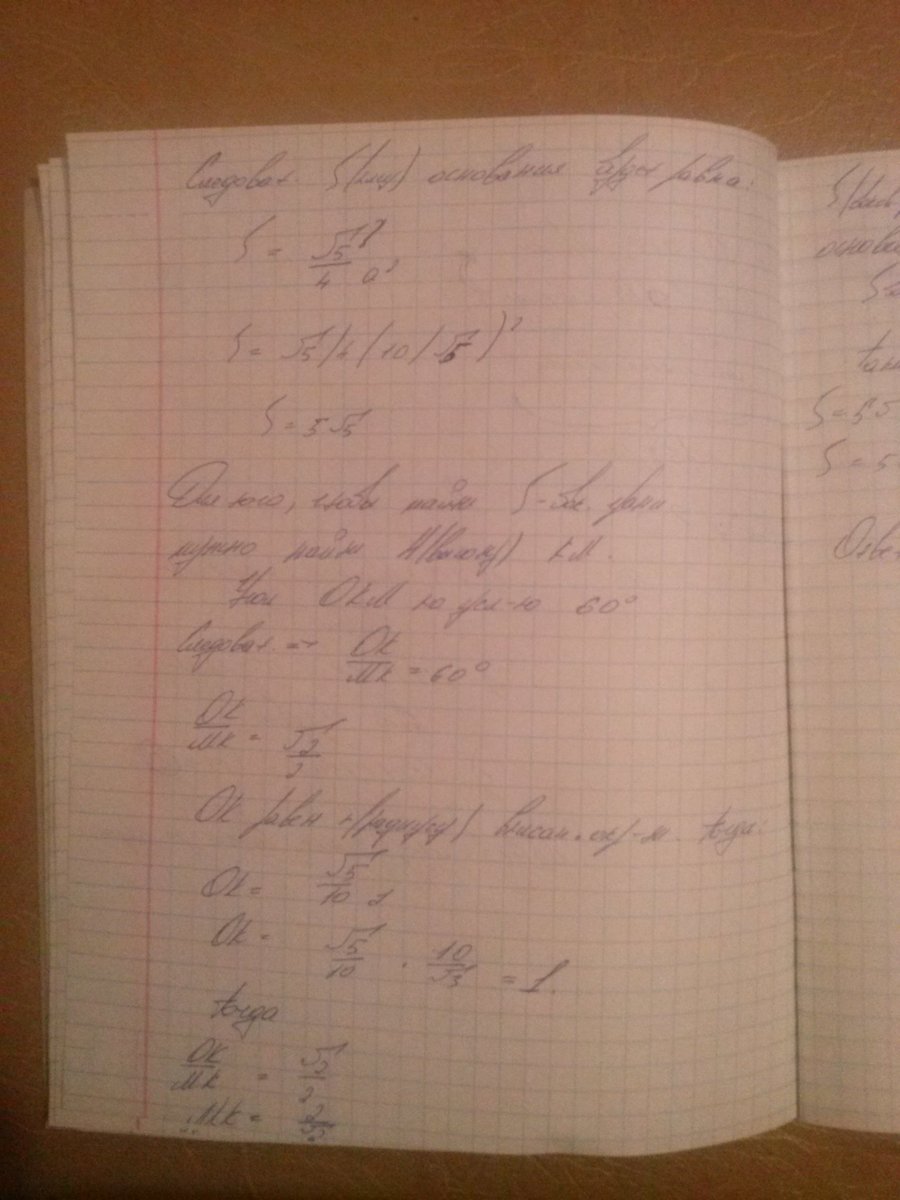 Следоват. S(площ) основания будет равна:
S = √5/4 a²
S = √5/4 (10/√5)²
S = 5√5
Для того, чтобы найти S-бок. грани
нужно найти H(высоту) KM.
Угол OKM по усл-ю 60°
Следоват. → OK/MK = 60°
OK/MK = √2/2
OK равен r(радиусу) вписан. окр-ти. тогда:
OK = √5/10
OK = √5/10 · 10/√5 = 1.
тогда
OK/MK = √2/2
MK = 2/√2
S(бок
основа
S
так
S = 5
S = 5
Ответ